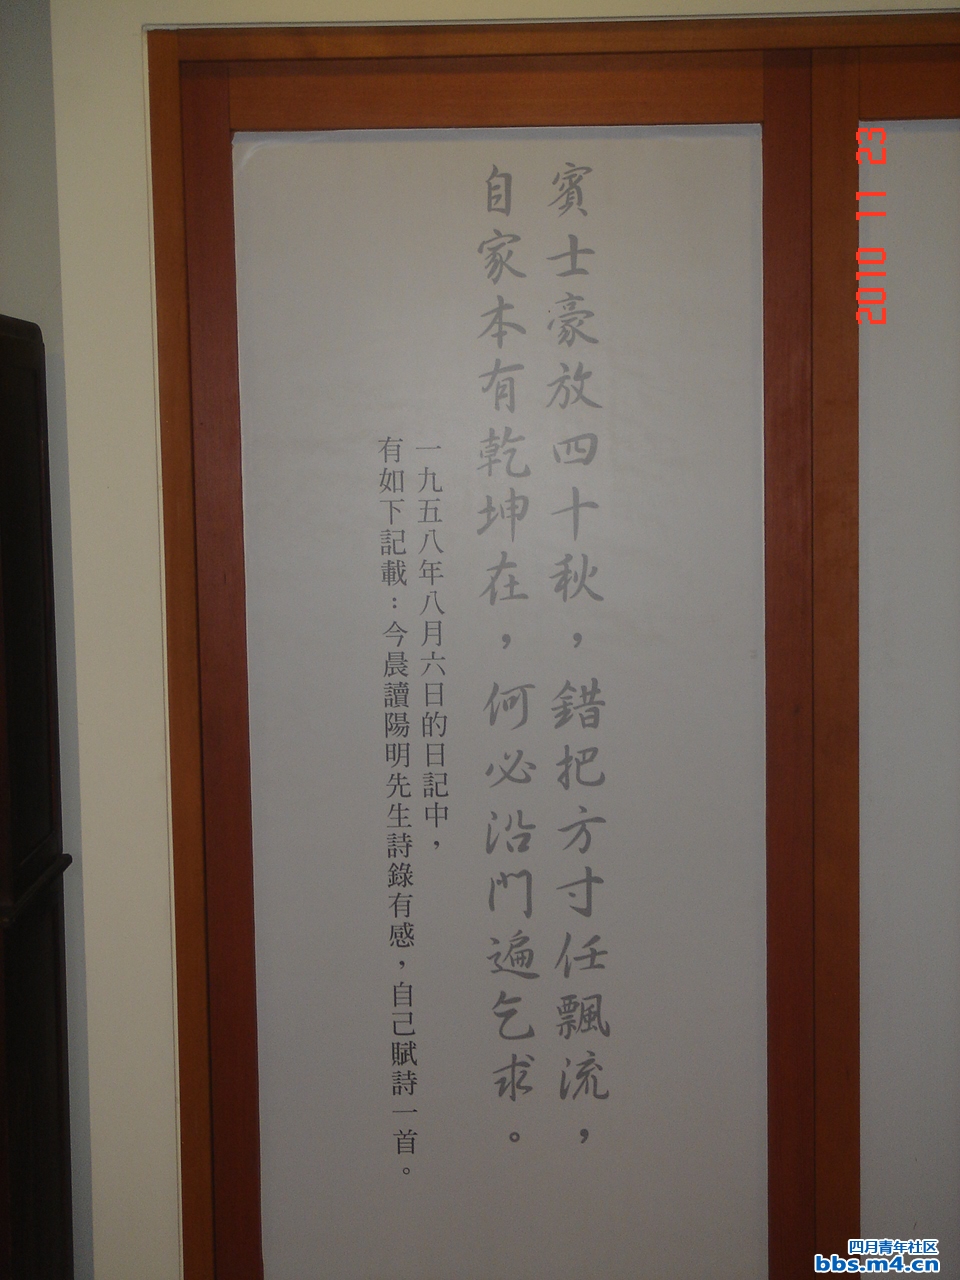 賓士豪放四十秋，錯把方寸任飄流，
自家本有乾坤在，何必沿門遍乞求。
一九五八年八月六日的日記中，
有如下記載：今晨讀陽明先生詩錄有感，自己賦詩一首。
2010 11 23
四月青年社区
bbs.m4.cn